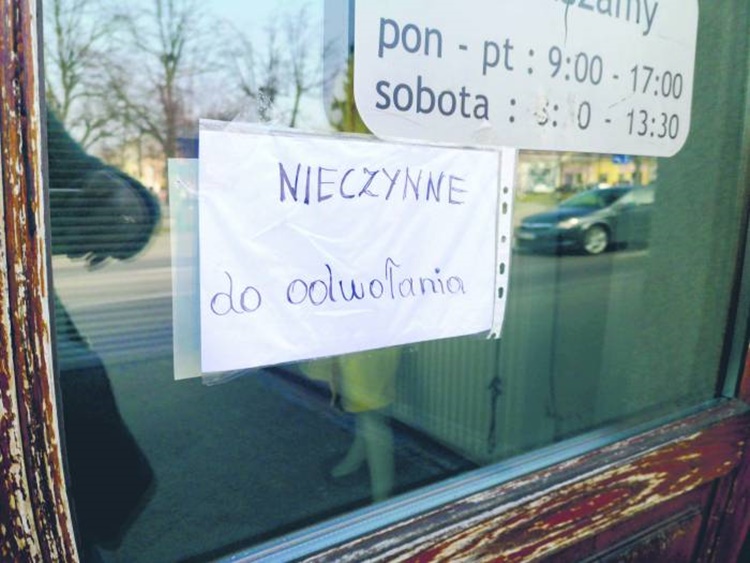 pon - pt : 9:00 - 17:00
sobota : 0 - 13:30
NIECZYNNE
do odwołania